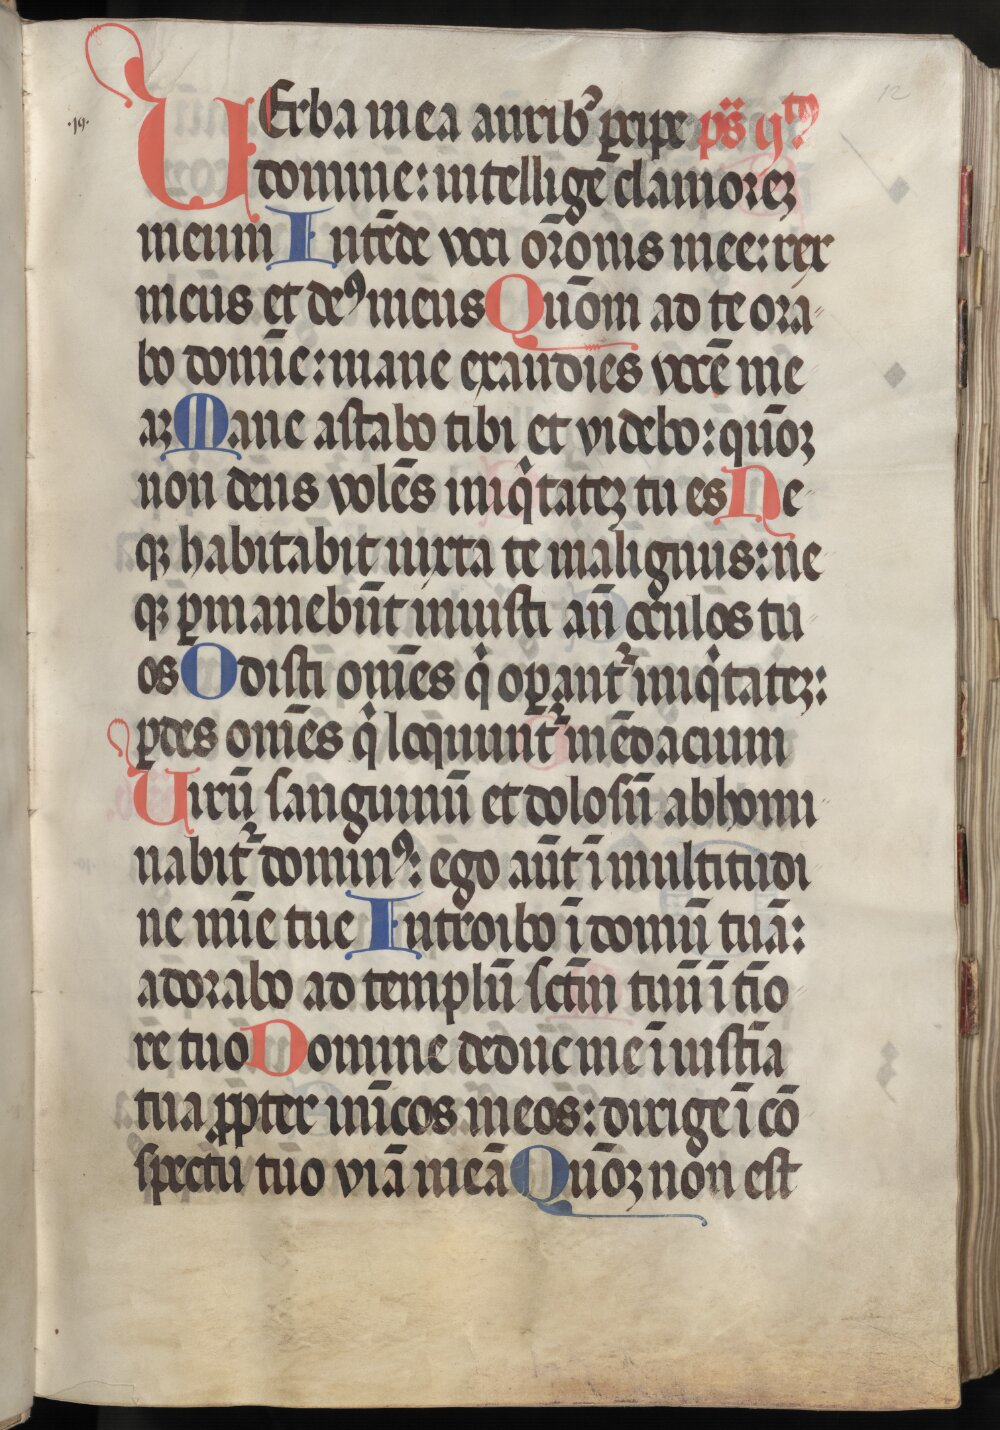 12
·19·
VErba mea aurib⁹ ꝑcipe ps̄ ijᵗᵒ
domine: intellige clamoreꝫ
meum Intēde voci or̄onis mee: rex
meus et de⁹ meus Qūom ad te ora
bo domīe: mane exaudies vocē me
aꝫ Mane astabo tibi et videbo: qūoꝫ
non deus volēs iniqͥtateꝫ tu es Ne
qꝫ habitabit iuxta te malignus: ne
qꝫ ꝑmanebūt iniusti an̄ oculos tu
os Odisti om̄es qͥ oꝑant᷑ iniqͥtateꝫ:
ꝑdes om̄es qͥ loquunt᷑ mēdacium
Virū sanguinū et dolosū abhomi
nabit᷑ domin⁹: ego aūt ī multitudi
ne mīe tue Introibo ī domū tuā:
adorabo ad templū sctm̄ tuū ī tīo
re tuo Domine deduc me ī iustīa
tua ꝓpter inīcos meos: dirige ī cō
spectu tuo viā meā Qūoꝫ non est